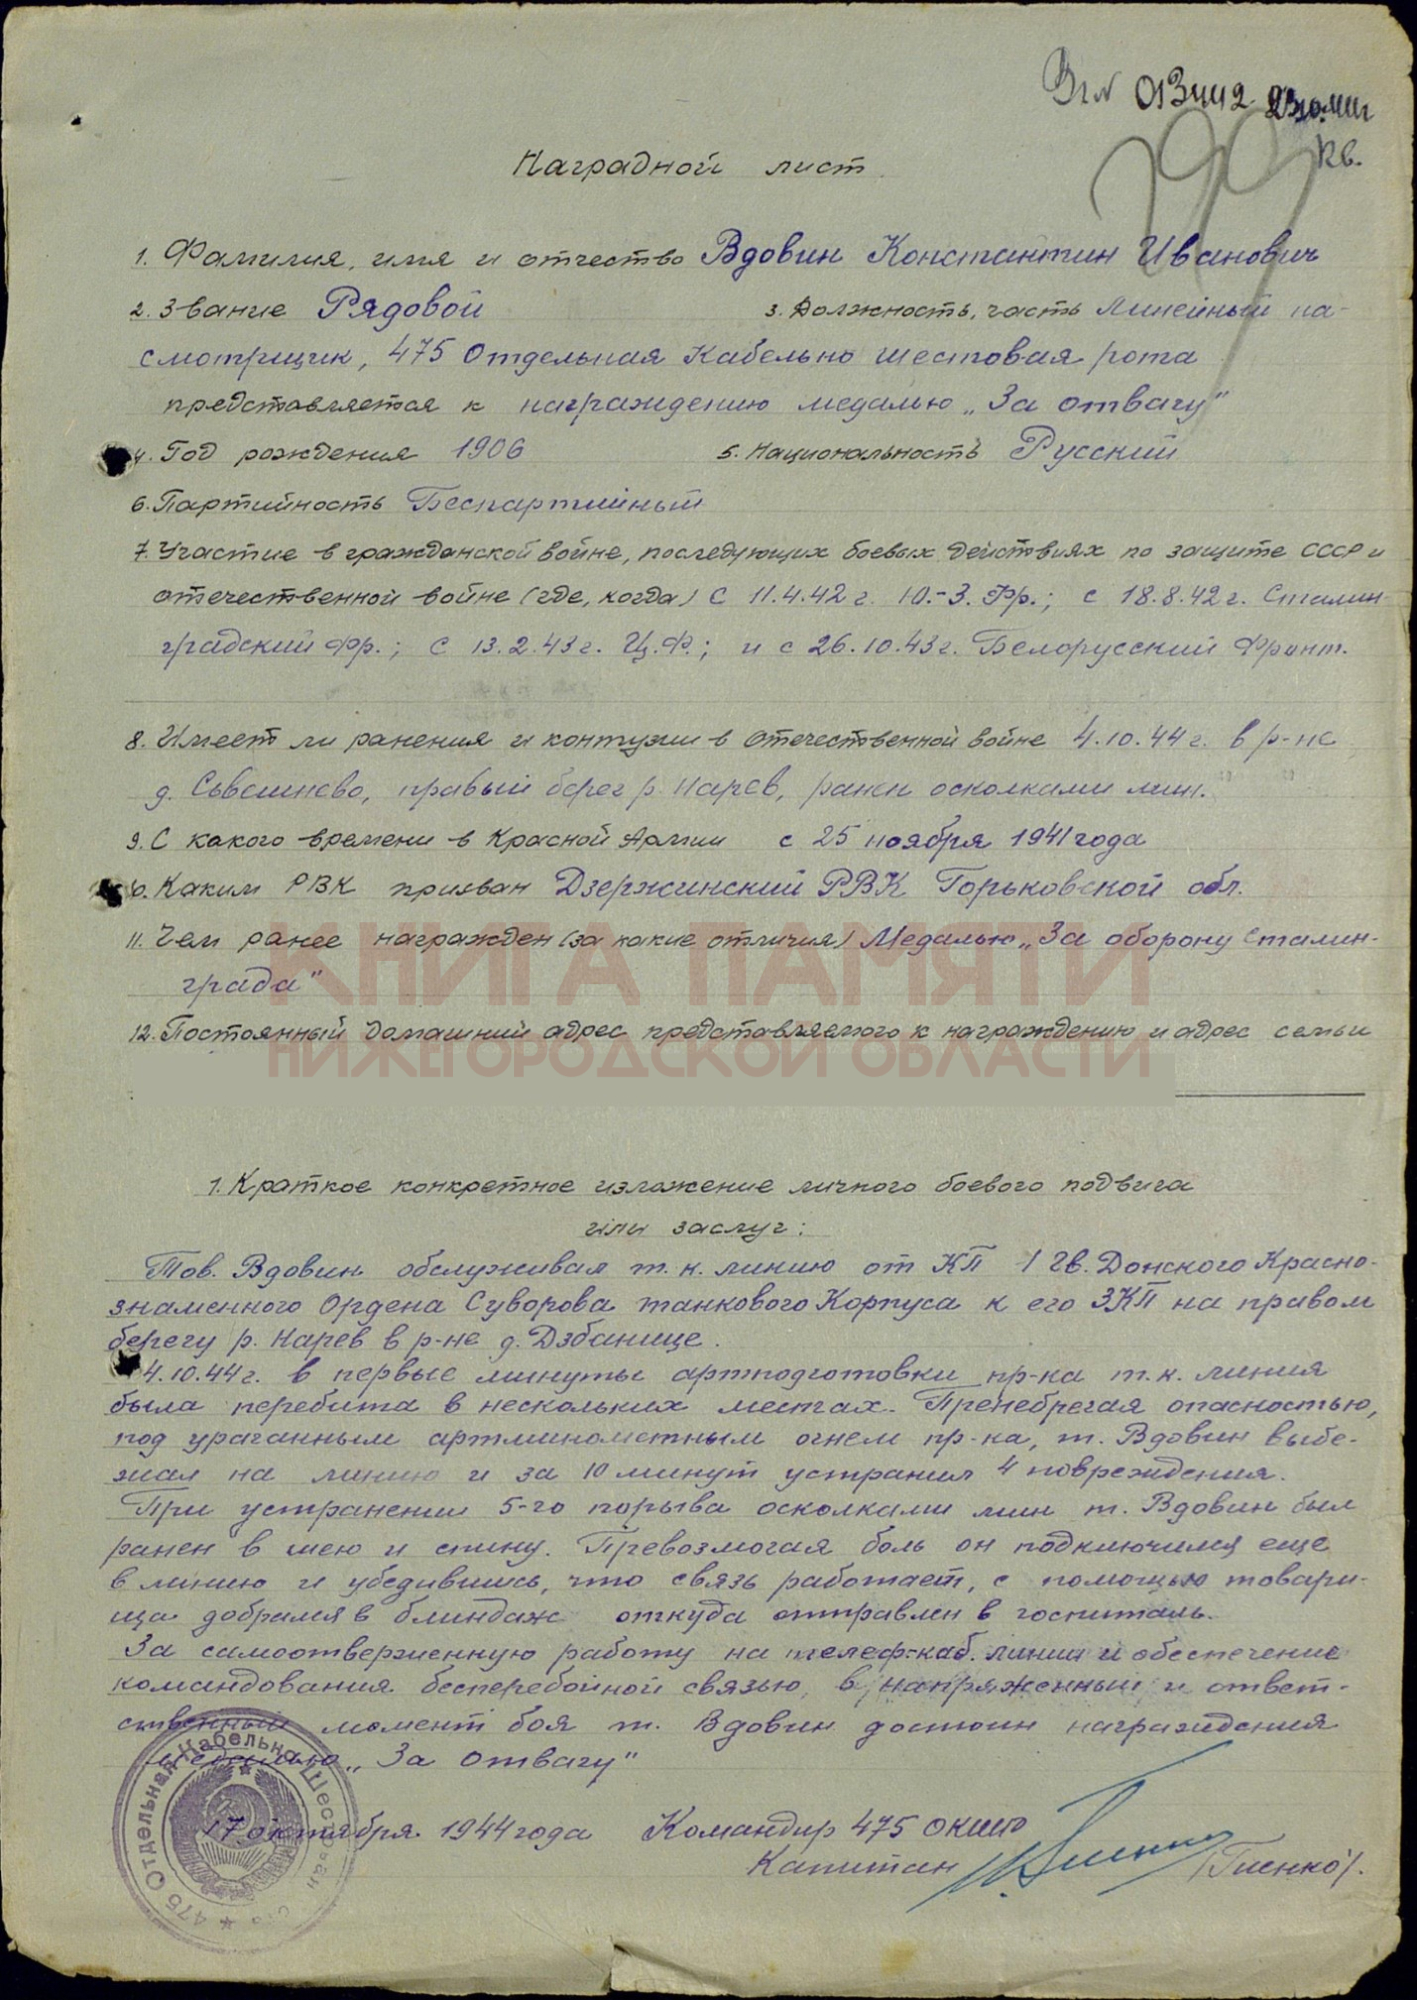 Наградной лист
1. Фамилия, имя и отчество Вдовин Константин Иванович
2. Звание Рядовой 3. Должность, часть Линейный на-
смотрщик, 475 Отдельная Кабельно шестовая рота
представляется к награждению медалью „За отвагу"
4. Год рождения 1906 5. Национальность Русский
6. Партийность Беспартийный
7. Участие в гражданской войне, последующих боевых действиях по защите СССР и
отечественной войне (где, когда) С 11.4.42 г. Ю.-З. Фр.; с 18.8.42 г. Сталин-
градский Фр.; С 13.2.43 г. Ц.Ф.; и с 26.10.43 г. Белорусский Фронт.
8. Имеет ли ранения и контузии в отечественной войне 4.10.44 г. в р-не
д. правый берег р. Нарев, ранен осколками мин.
9. С какого времени в Красной Армии с 25 ноября 1941 года
10. Каким РВК призван Дзержинский РВК Горьковской обл.
11. Чем ранее награжден (за какие отличия) Медалью „За оборону Сталин-
града"
КНИГА ПАМЯТИ
12. Постоянный домашний адрес представляемого к награждению и адрес семьи
НИЖЕГОРОДСКОЙ ОБЛАСТИ
1. Краткое конкретное изложение личного боевого подвига
или заслуг:
Тов. Вдовин обслуживал т.к. линию от КП 1 Гв. Донского Красно-
знаменного Ордена Суворова танкового Корпуса к его ЗКП на правом
берегу р. Нарев в р-не д. Дзбанице.
4.10.44 г. в первые минуты артподготовки пр-ка т.к. линия
была перебита в нескольких местах. Пренебрегая опасностью,
под ураганным артминометным огнем пр-ка, т. Вдовин выбе-
жал на линию и за 10 минут устранил 4 повреждения.
При устранении 5-го порыва осколками мин т. Вдовин был
ранен в шею и спину. Превозмогая боль он подключился еще
в линию и убедившись, что связь работает, с помощью товари-
ща добрался в блиндаж откуда отправлен в госпиталь.
За самоотверженную работу на телеф-каб. линии и обеспечение
командования бесперебойной связью, в напряженный и ответ-
ственный момент боя т. Вдовин достоин награждения
медалью „За отвагу"
17 октября 1944 года Командир 475 ОКШР
Капитан /Гиенко/.
475 Отдельная Кабельно Шестовая